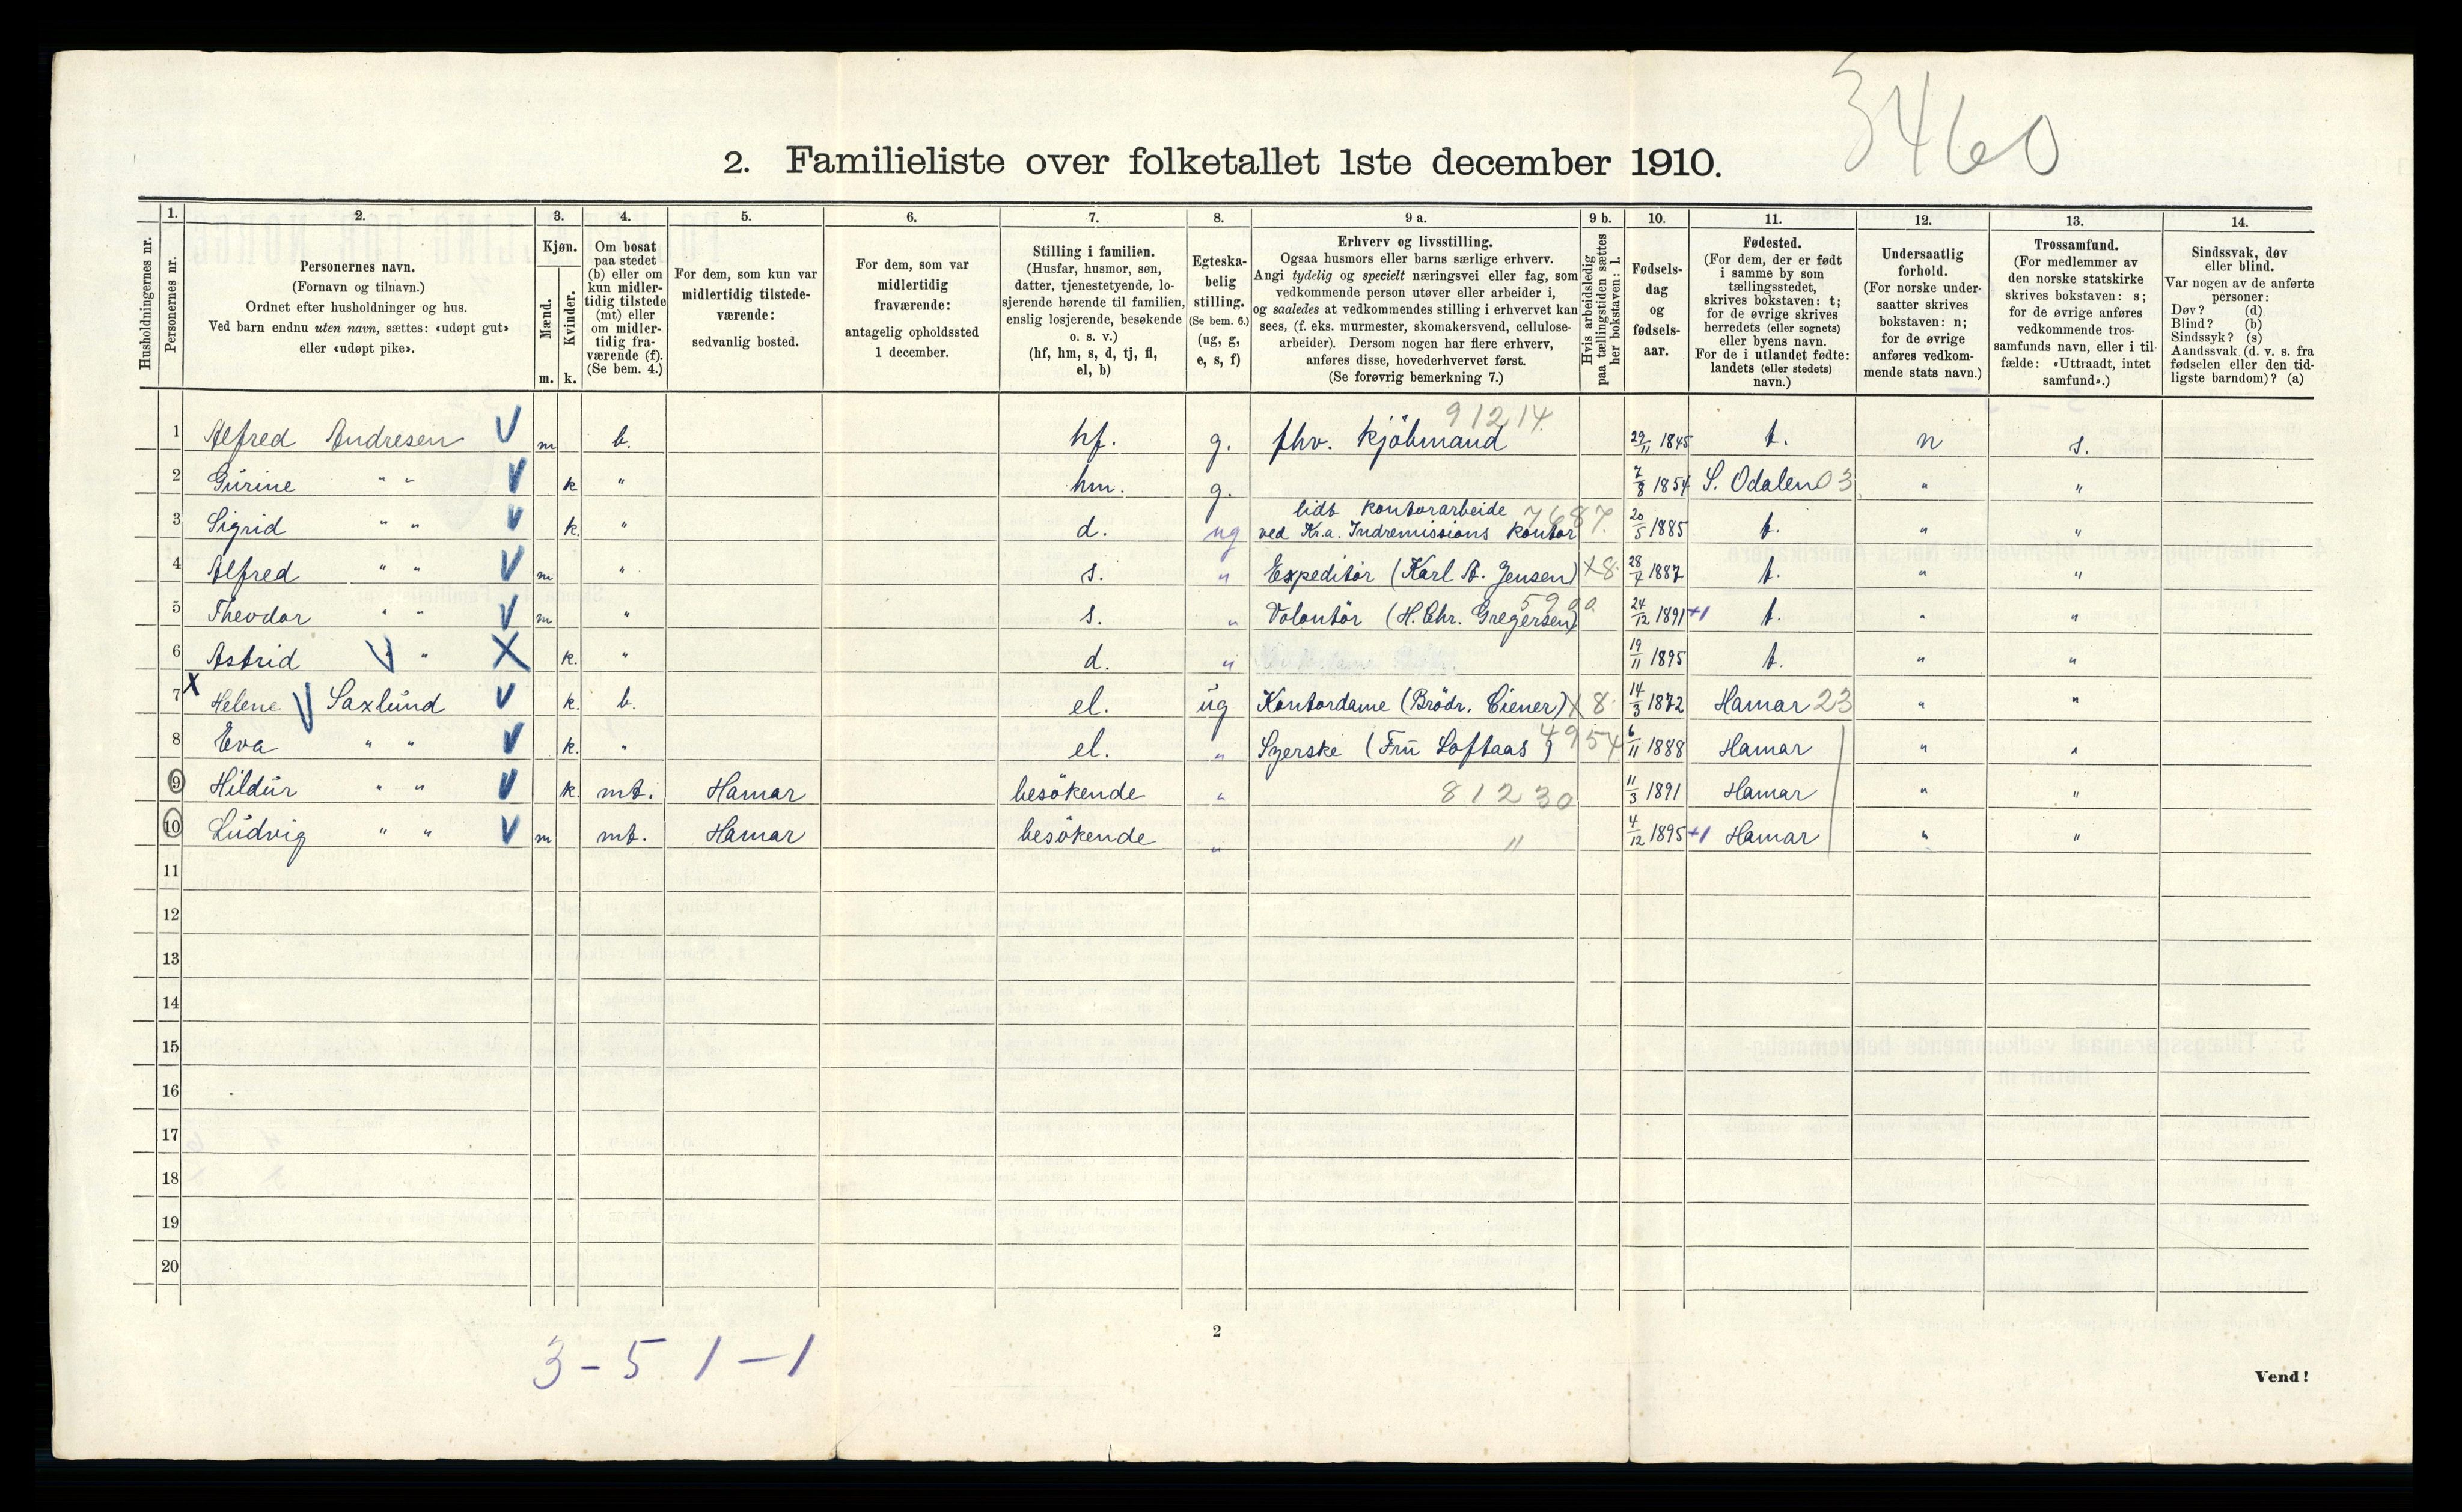 3460
2. Familieliste over folketallet 1ste december 1910.
Husholdningernes nr.
1.
Personernes nr.
2.
Personernes navn.
(Fornavn og tilnavn.)
Ordnet efter husholdninger og hus.
Ved barn endnu uten navn, sættes: «udøpt gut»
eller «udøpt pike».
3.
Kjøn.
Mænd.
Kvinder.
m. k.
4.
Om bosat
paa stedet
(b) eller om
kun midler-
tidig tilstede
(mt) eller
om midler-
tidig fra-
værende (f).
(Se bem. 4.)
5.
For dem, som kun var
midlertidig tilstede-
værende:
sedvanlig bosted.
6.
For dem, som var
midlertidig
fraværende:
antagelig opholdssted
1 december.
7.
Stilling i familien.
(Husfar, husmor, søn,
datter, tjenestetyende, lo-
sjerende hørende til familien,
enslig losjerende, besøkende
o. s. v.)
(hf, hm, s, d, tj, fl,
el, b)
8.
Egteska-
belig
stilling.
(Se bem. 6.)
(ug, g,
e, s, f)
9 a.
Erhverv og livsstilling.
Ogsaa husmors eller barns særlige erhverv.
Angi tydelig og specielt næringsvei eller fag, som
vedkommende person utøver eller arbeider i,
og saaledes at vedkommendes stilling i erhvervet kan
sees, (f. eks. murmester, skomakersvend, cellulose-
arbeider). Dersom nogen har flere erhverv,
anføres disse, hovederhvervet først.
(Se forøvrig bemerkning 7.)
9 b.
Hvis arbeidsledig
paa tællingstiden sættes
her bokstaven: l.
10.
Fødsels-
dag
og
fødsels-
aar.
11.
Fødested.
(For dem, der er født
i samme by som
tællingsstedet,
skrives bokstaven: t;
for de øvrige skrives
herredets (eller sognets)
eller byens navn.
For de i utlandet fødte:
landets (eller stedets)
navn.)
12.
Undersaatlig
forhold.
(For norske under-
saatter skrives
bokstaven: n;
for de øvrige
anføres vedkom-
mende stats navn.)
13.
Trossamfund.
(For medlemmer av
den norske statskirke
skrives bokstaven: s;
for de øvrige anføres
vedkommende tros-
samfunds navn, eller i til-
fælde: «Uttraadt, intet
samfund».)
14.
Sindssvak, døv
eller blind.
Var nogen av de anførte
personer:
Døv? (d)
Blind? (b)
Sindssyk? (s)
Aandssvak (d. v. s. fra
fødselen eller den tid-
ligste barndom)? (a)
91214.
1 Alfred Andresen V m b. hf. g. fhv. kjöbmand 29/11 1845 t. n s.
2 Gurine " " V k " hm. g. 7/8 1854 S. Odalen 03 " "
3 Sigrid " " V k. " d. ug lidt kontorarbeide 7687.
ved Kr.a. Indremissions kontor 20/5 1885 t. " "
4 Alfred " " V m " s. " Expeditör (Karl A. Jensen) X8. 28/7 1887 t. " "
5 Theodor " " V m " s. " Volontör (H. Chr. Gregersen) 24/12 1891 +1 t. " "
6 Astrid V " X k. " d. " 19/11 1895 t. " "
X 7 Helene V Saxlund V k. b. el. ug Kontordame (Brödr. Ciener) X 8. 14/3 1872 Hamar 23 " "
8 Eva " " V k. " el. " Syerske (Frü Loftaas) 4954 6/11 1888 Hamar " "
9 Hildur " " V k. mt. Hamar besökende " 81230 11/3 1891 Hamar " "
10 Ludvig " " V m mt. Hamar besökende " " 4/12 1895 +1 Hamar " "
11
12
13
14
15
16
17
18
19
20
2
3-5 1-1
Vend!